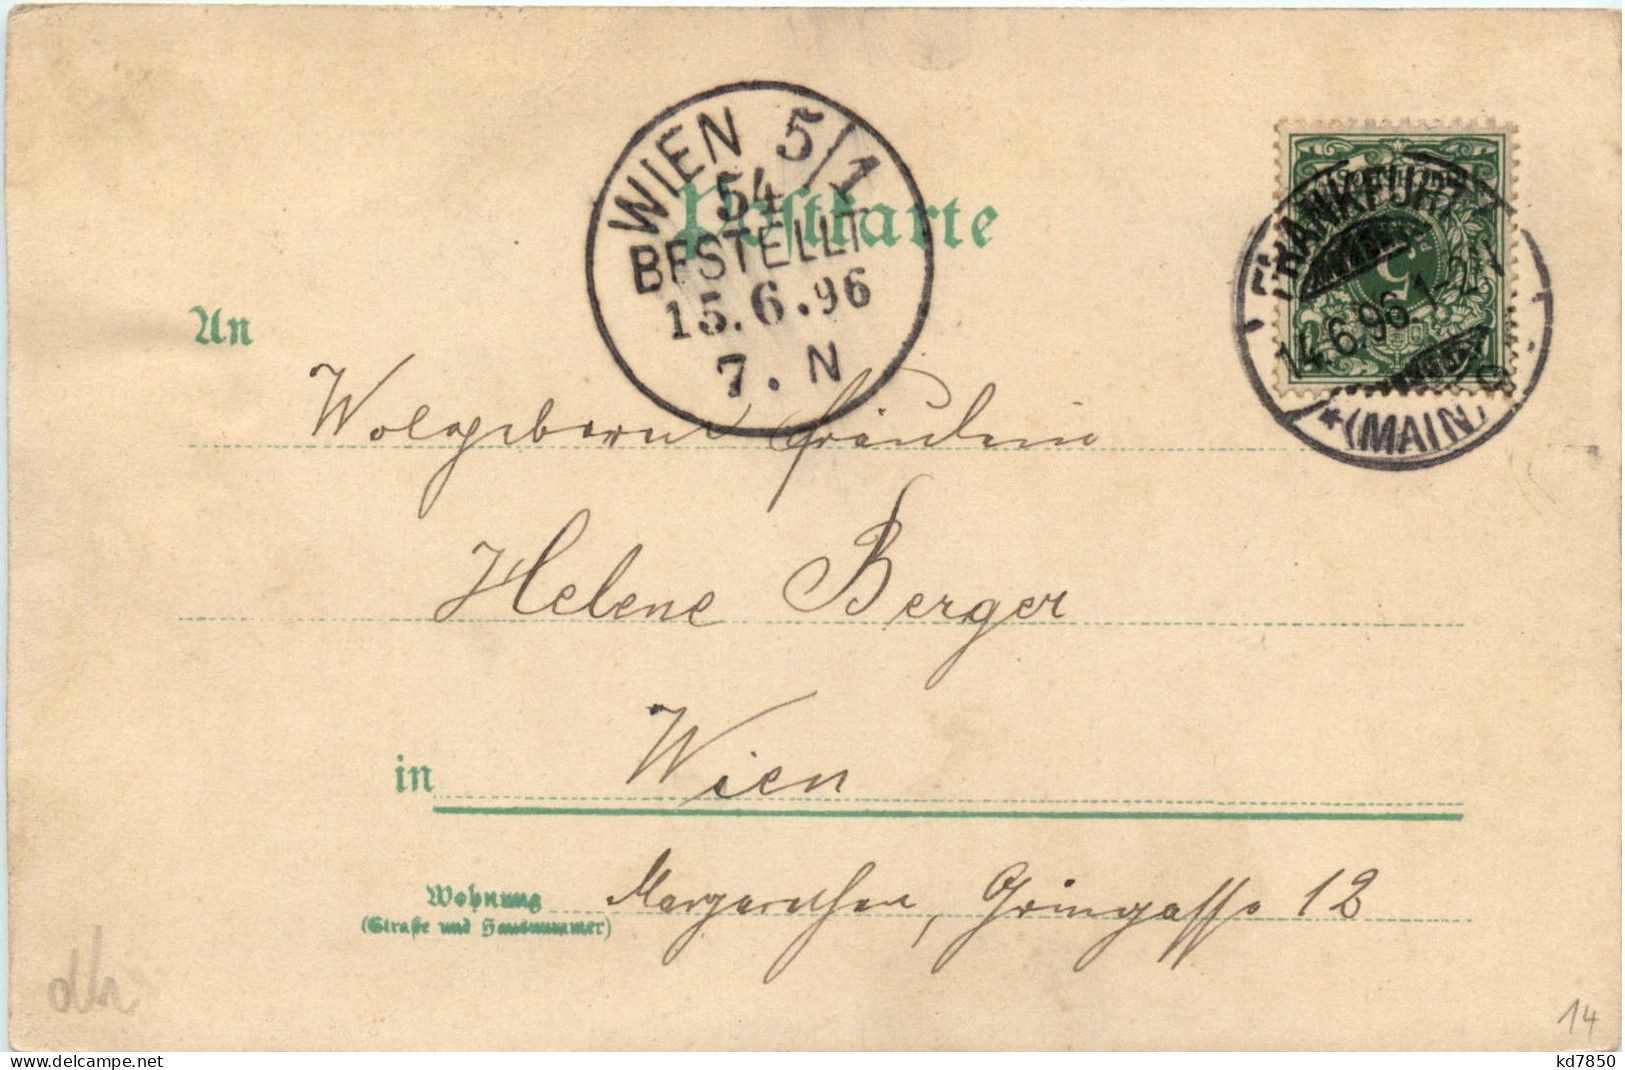 WIEN 5/1
54
BESTELLT
15.6.96
7. N
Postkarte
FRANKFURT
14.6.96 1-2 N
*(MAIN)
5
An
Wolgeborne Fräulein
Helene Berger
in Wien
Wohnung
(Straße und Hausnummer)
Margarethen, Grüngasse 12
14
kd7850
delcampe.net